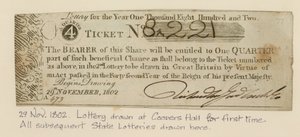 for the Year One Thousand Eight Hundred and Two.
4 TICKET No 8,221
The BEARER of this Share will be entitled to One QUARTER
part of such beneficial Chance as shall belong to the Ticket numbered
as above, in the 2d Lottery to be drawn in Great Britain by Virtue of
an Act passed in the Forty-second Year of the Reign of his present Majesty.
Begins Drawing
29 NOVEMBER, 1802
29 Nov. 1802. Lottery drawn at Coopers Hall for first time.
All subsequent State Lotteries drawn here.